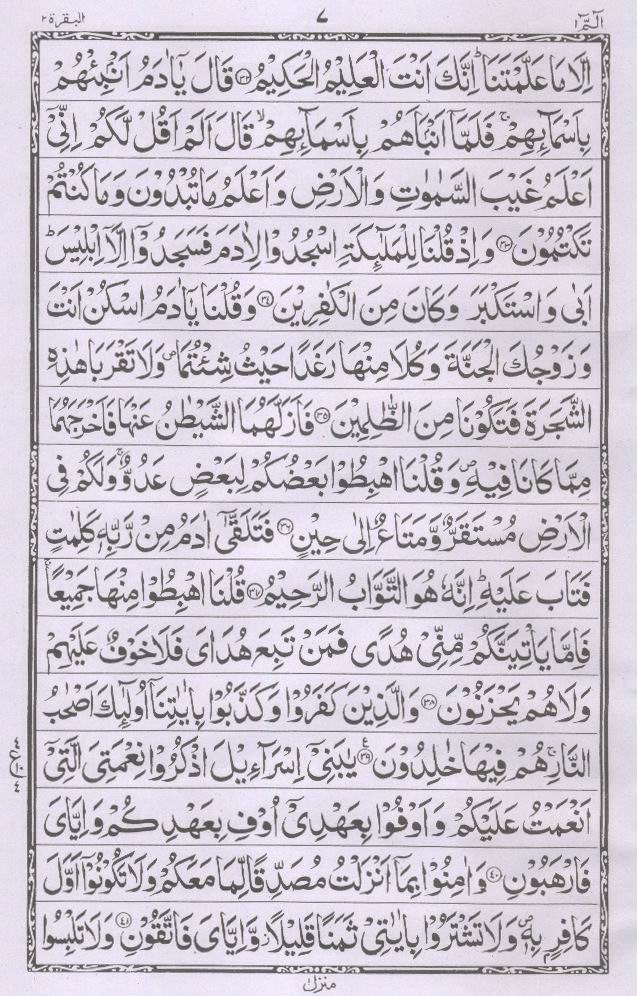 الٓمّٓ ١ ٧ البقرة ٢
اِلَّا مَا عَلَّمْتَنَا ؕ اِنَّكَ اَنْتَ الْعَلِیْمُ الْحَكِیْمُ ﴿۳۲﴾ قَالَ یٰۤاٰدَمُ اَنْۢبِئْهُمْ
بِاَسْمَآىِٕهِمْ ۚ فَلَمَّاۤ اَنْۢبَاَهُمْ بِاَسْمَآىِٕهِمْ ۙ قَالَ اَلَمْ اَقُلْ لَّكُمْ اِنِّیْۤ
اَعْلَمُ غَیْبَ السَّمٰوٰتِ وَ الْاَرْضِ وَ اَعْلَمُ مَا تُبْدُوْنَ وَ مَا كُنْتُمْ
تَكْتُمُوْنَ ﴿۳۳﴾ وَ اِذْ قُلْنَا لِلْمَلٰٓىِٕكَةِ اسْجُدُوْا لِاٰدَمَ فَسَجَدُوْۤا اِلَّاۤ اِبْلِیْسَ ؕ
اَبٰى وَ اسْتَكْبَرَ وَ كَانَ مِنَ الْكٰفِرِیْنَ ﴿۳۴﴾ وَ قُلْنَا یٰۤاٰدَمُ اسْكُنْ اَنْتَ
وَ زَوْجُكَ الْجَنَّةَ وَ كُلَا مِنْهَا رَغَدًا حَیْثُ شِئْتُمَا ۪ وَ لَا تَقْرَبَا هٰذِهِ
الشَّجَرَةَ فَتَكُوْنَا مِنَ الظّٰلِمِیْنَ ﴿۳۵﴾ فَاَزَلَّهُمَا الشَّیْطٰنُ عَنْهَا فَاَخْرَجَهُمَا
مِمَّا كَانَا فِیْهِ ۪ وَ قُلْنَا اهْبِطُوْا بَعْضُكُمْ لِبَعْضٍ عَدُوٌّ ۚ وَ لَكُمْ فِی
الْاَرْضِ مُسْتَقَرٌّ وَّ مَتَاعٌ اِلٰى حِیْنٍ ﴿۳۶﴾ فَتَلَقّٰۤى اٰدَمُ مِنْ رَّبِّهٖ كَلِمٰتٍ
فَتَابَ عَلَیْهِ ؕ اِنَّهٗ هُوَ التَّوَّابُ الرَّحِیْمُ ﴿۳۷﴾ قُلْنَا اهْبِطُوْا مِنْهَا جَمِیْعًا ۚ
فَاِمَّا یَاْتِیَنَّكُمْ مِّنِّیْ هُدًى فَمَنْ تَبِعَ هُدَایَ فَلَا خَوْفٌ عَلَیْهِمْ
وَ لَا هُمْ یَحْزَنُوْنَ ﴿۳۸﴾ وَ الَّذِیْنَ كَفَرُوْا وَ كَذَّبُوْا بِاٰیٰتِنَاۤ اُولٰٓىِٕكَ اَصْحٰبُ
النَّارِ ۚ هُمْ فِیْهَا خٰلِدُوْنَ ﴿۳۹﴾ ع یٰبَنِیْۤ اِسْرَآءِیْلَ اذْكُرُوْا نِعْمَتِیَ الَّتِیْۤ
اَنْعَمْتُ عَلَیْكُمْ وَ اَوْفُوْا بِعَهْدِیْۤ اُوْفِ بِعَهْدِكُمْ وَ اِیَّایَ
فَارْهَبُوْنِ ﴿۴۰﴾ وَ اٰمِنُوْا بِمَاۤ اَنْزَلْتُ مُصَدِّقًا لِّمَا مَعَكُمْ وَ لَا تَكُوْنُوْۤا اَوَّلَ
كَافِرٍۭ بِهٖ ۪ وَ لَا تَشْتَرُوْا بِاٰیٰتِیْ ثَمَنًا قَلِیْلًا ؗ وَّ اِیَّایَ فَاتَّقُوْنِ ﴿۴۱﴾ وَ لَا تَلْبِسُوا
منزل ١